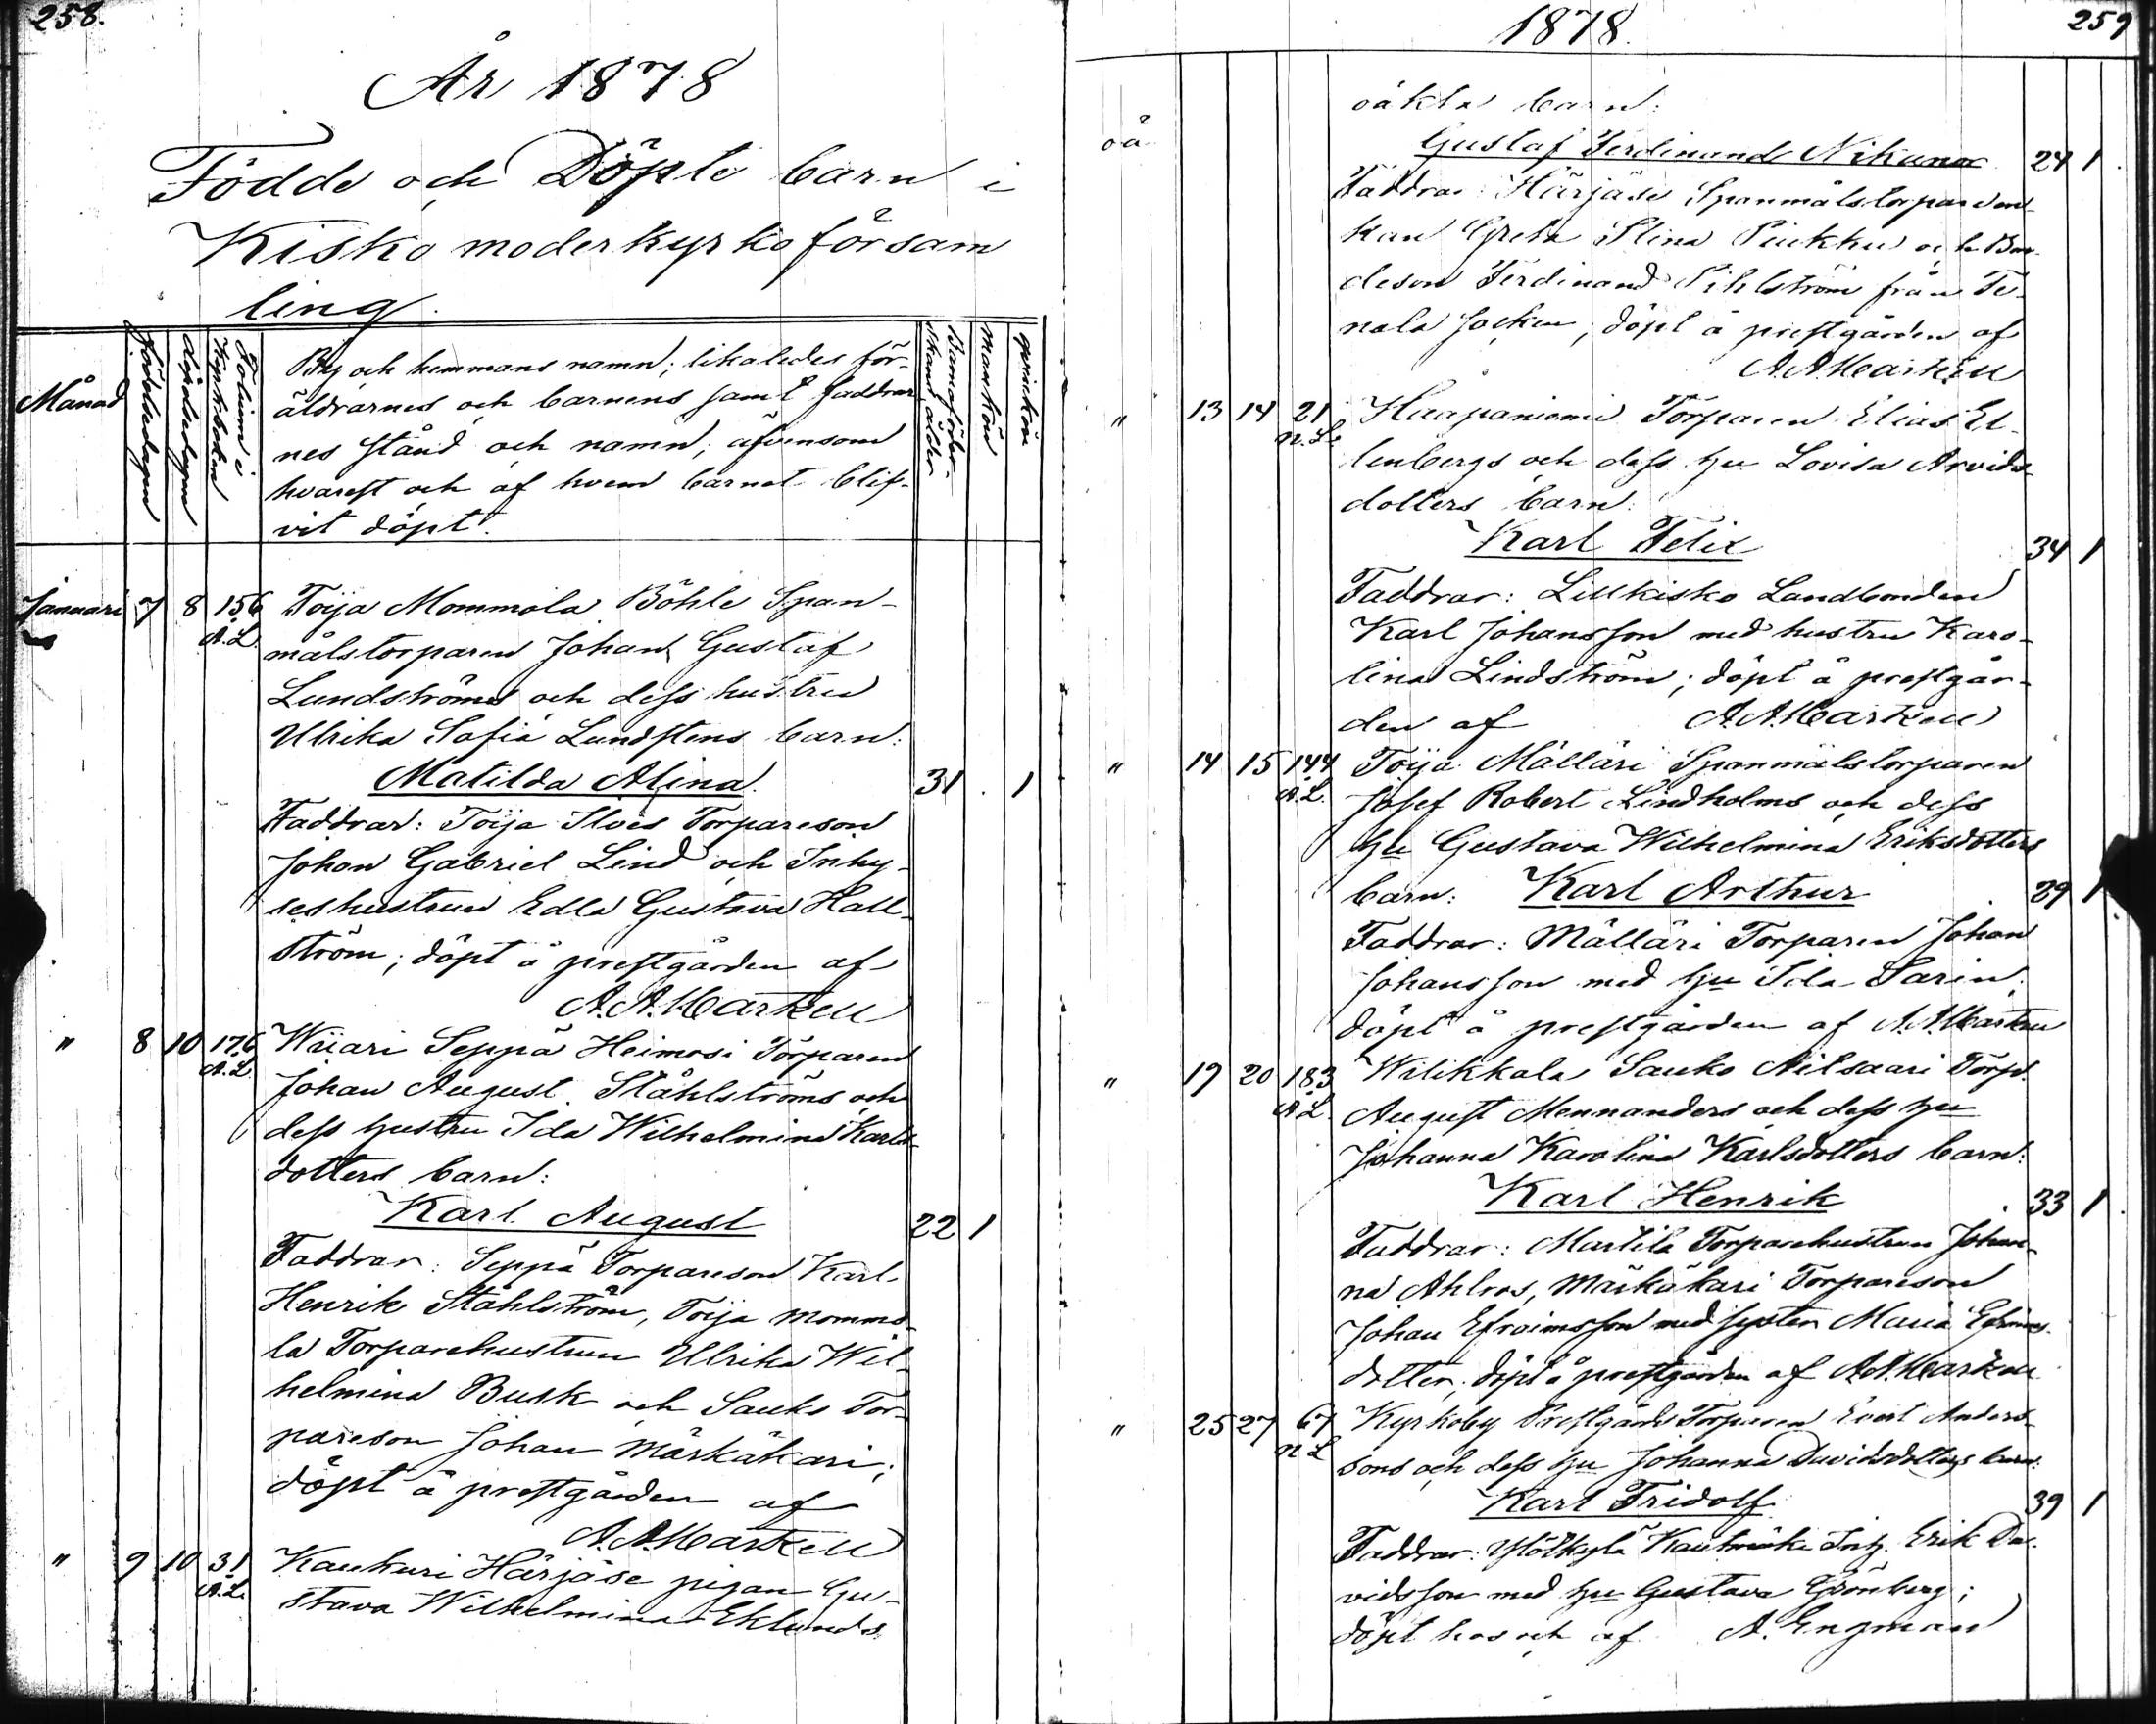 258.
År 1878
Födde och Döpte barn i
Kisko moderkyrkoförsam
ling.
Månad
födelsedagen
döpelsedagen
Folium i
Kyrkoboken
By och hemmans namn; likaledes för-
äldrarnes och barnens samt faddrar-
nes stånd och namn, äfvensom
hvarest och af hvem barnet blif-
vit döpt.
Barnaföder-
skans ålder
mankön
qvinkön
Januari 7 8 156 Toija Mommola Böhle Span-
A.L. målstorparen Johan Gustaf
Lundströms och dess hustru
Ulrika Sofia Lundstens barn:
Matilda Alina. 31 1
Faddrar: Toija Ilves Torpareson
Johan Gabriel Lind och Inhy-
seshustrun Edla Gustava Hall-
ström; döpt å prestgården af
A. A. Markell
" 8 10 176 Wiiari Seppä Heimosi Torparen
A.L. Johan August Ståhlströms och
dess hustru Ida Wilhelmina Karls-
dotters barn:
Karl August 22 1
Faddrar: Seppä Torpareson Karl
Henrik Ståhlström, Toija Mommo-
la Torparehustrun Ulrika Wil-
helmina Busk och Sauko Tor-
pareson Johan Märkäkari;
döpt å prestgården af
A. A. Markell
" 9 10 31 Kaukuri Härjäse pigan Gu-
A.L. stava Wilhelmina Eklunds
1878.
259
oäkta barn:
oä Gustaf Ferdinand Nikanor 24 1
Faddrar: Härjäse Spanmålstorparen
Greta Stina och Bon-
deson Ferdinand Pihlström från Te-
nala Socken, döpt å prestgården af
A. A. Markell
" 13 14 21 Haapaniemi Torparen Elias El-
n.L. lenbergs och dess hu Lovisa Arvids-
dotters barn:
Karl Felix 34 1
Faddrar: Lillkisko Landbonden
Karl Johansson med hustru Karo-
lina Lindström; döpt å prestgår-
den af A. A. Markell
" 14 15 144 Toija Mälläri Spanmålstorparen
A.L. Josef Robert Lindholms och dess
hu Gustava Wilhelmina Eriksdotters
barn: Karl Arthur 29 1
Faddrar: Mälläri Torparen Johan
Johansson med hu Ida Sarin;
döpt å prestgården af A. A. Markell
" 19 20 183 Wilikkala Sauko Ailsaari Torp.
A.L. August Mennanders och dess hu
Johanna Karolina Karlsdotters barn:
Karl Henrik 33 1
Faddrar: Martila Torparehustrun Johan-
na Ahlros, Märkäkari Torpareson
Johan Efraimsson med syster Maria Efraims-
dotter; döpt å prestgården af A. A. Markell
" 25 27 67 Kyrkoby Prestgårds Torparen Evert Anders-
n.L. sons och dess hu Johanna Davidsdotters barn:
Karl Fridolf 39 1
Faddrar: Erik Da-
vidsson med hu Gustava Grönberg;
döpt hos och af A. Engman